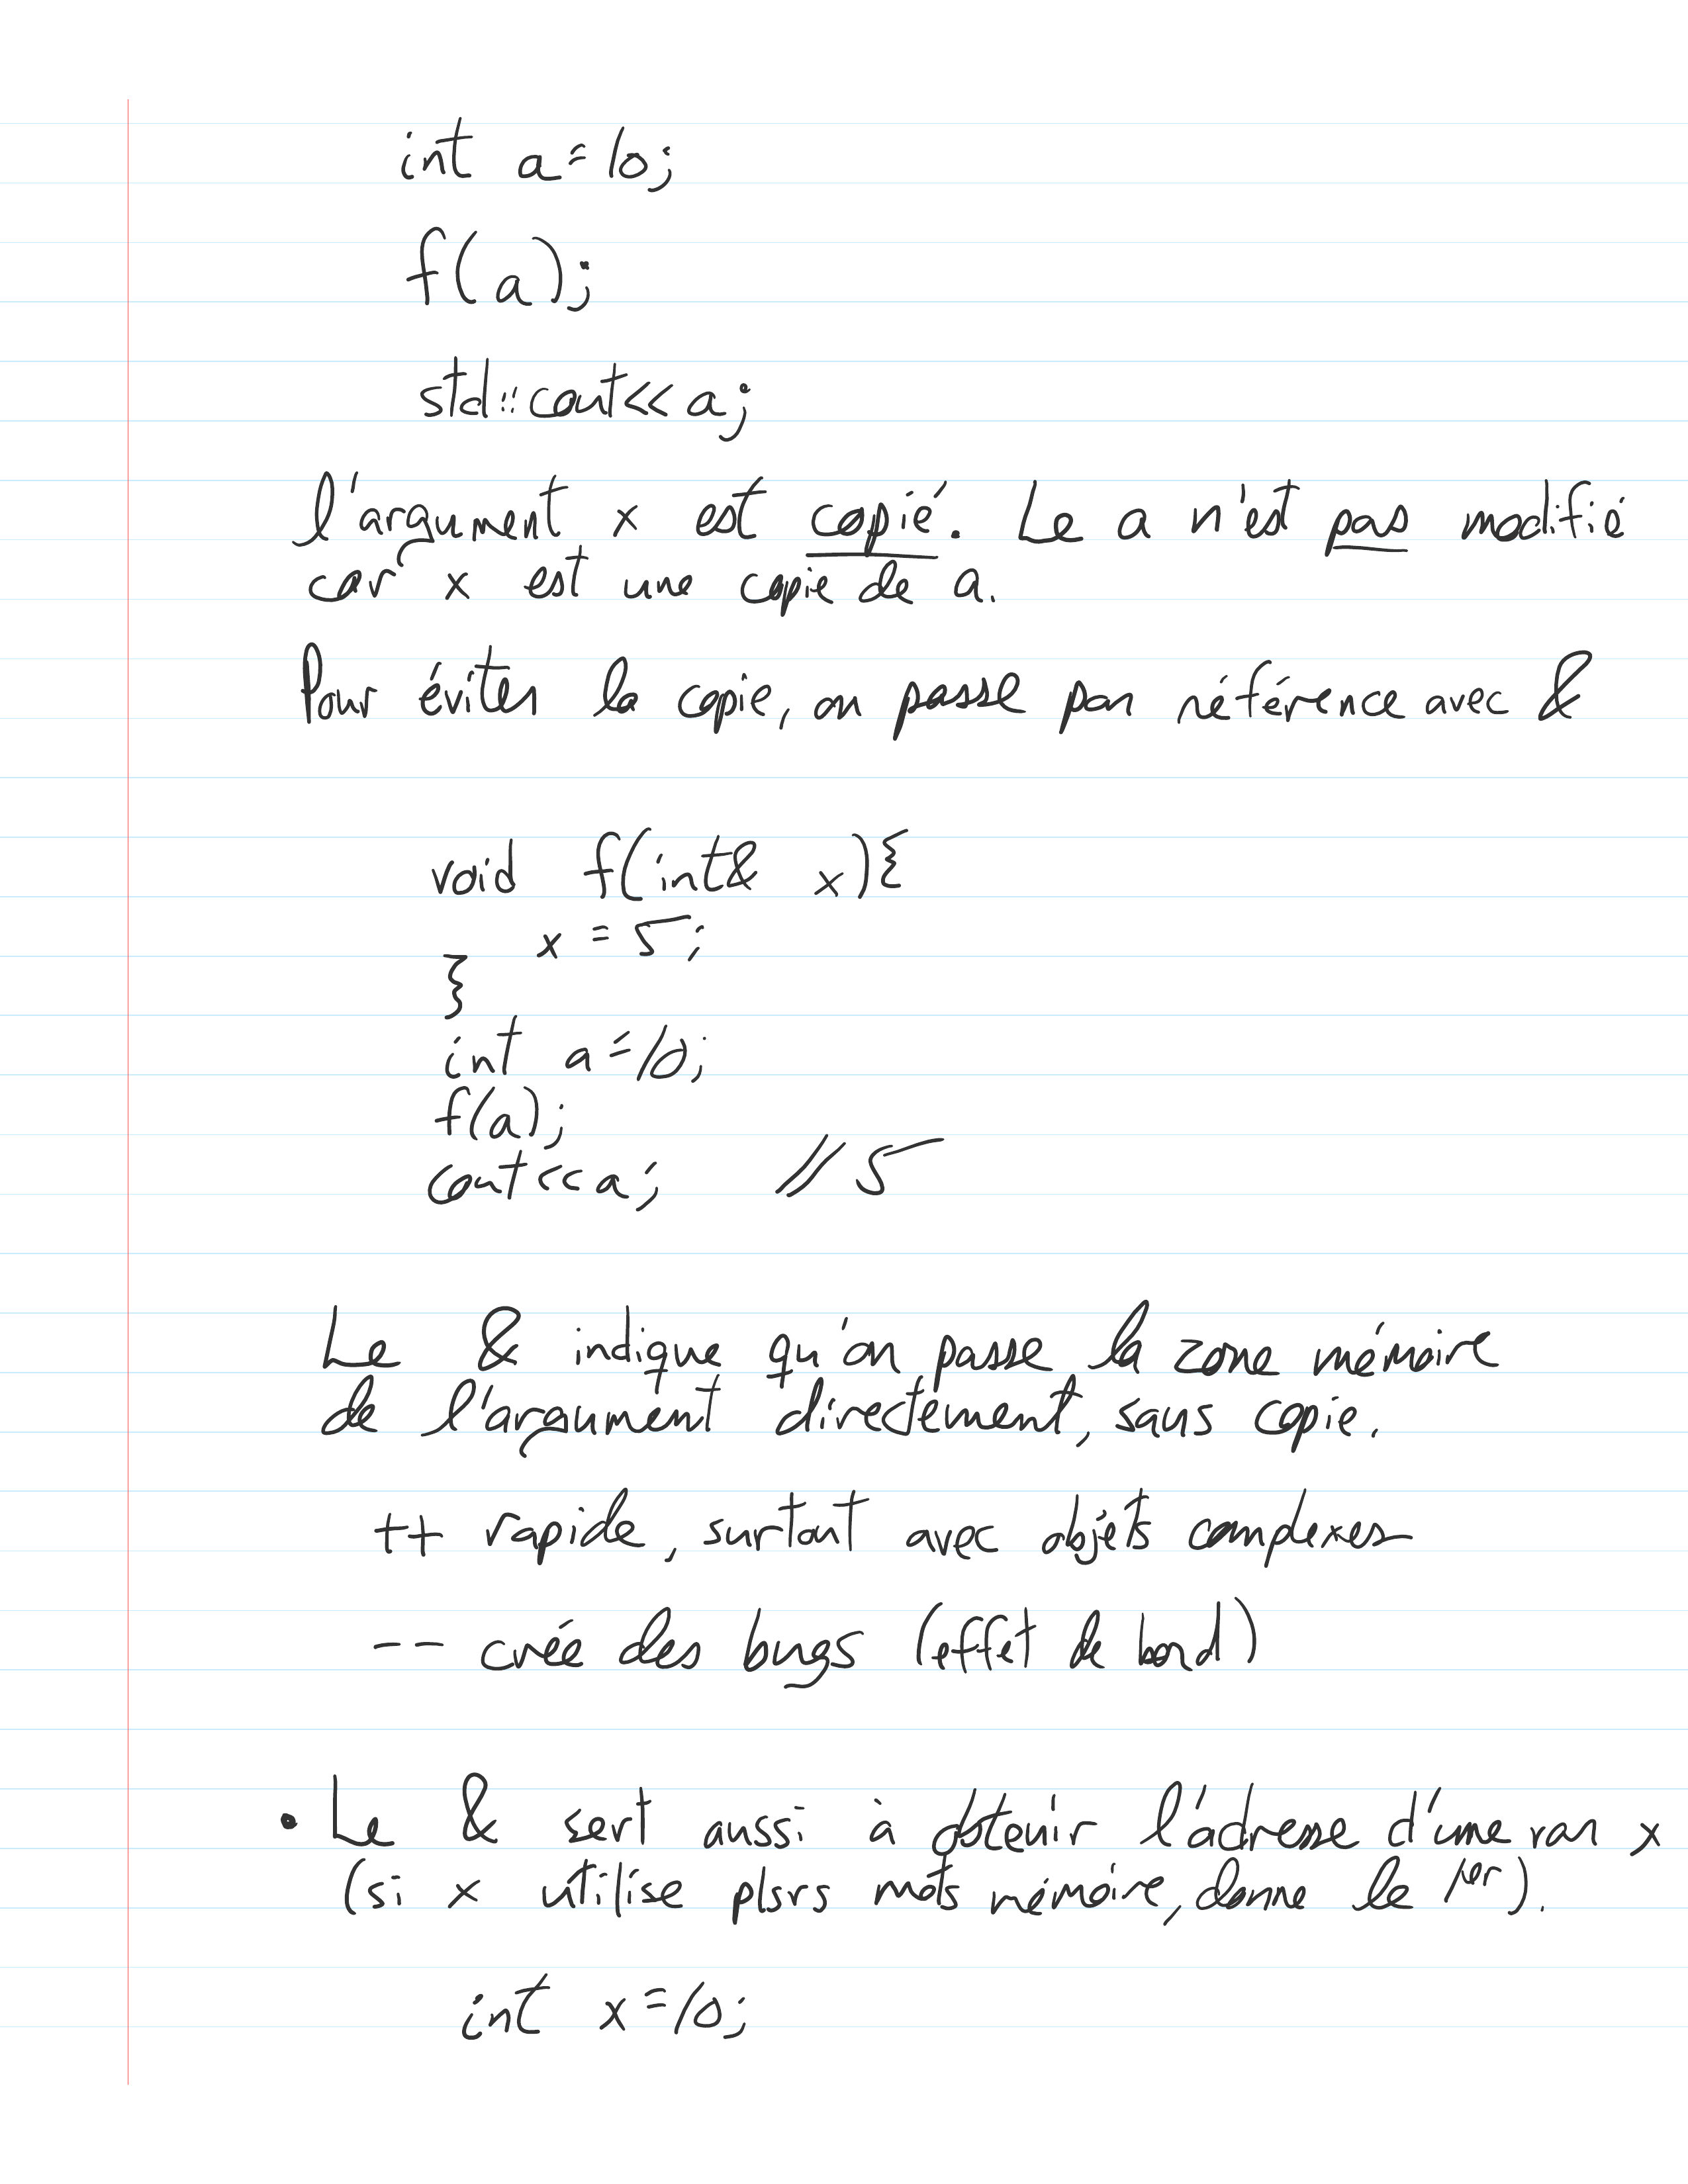 int a=10;
f(a);
std::cout<<a;
l'argument x est copié. Le a n'est pas modifié
car x est une copie de a.
Pour éviter la copie, on passe par référence avec &
void f(int& x){
x = 5;
}
int a=10;
f(a);
cout<<a; // 5
Le & indique qu'on passe la zone mémoire
de l'argument directement, sans copie.
++ rapide, surtout avec objets complexes
-- crée des bugs (effet de bord)
• Le & sert aussi à obtenir l'adresse d'une var x
(si x utilise plsrs mots mémoire, donne le 1er).
int x=10;